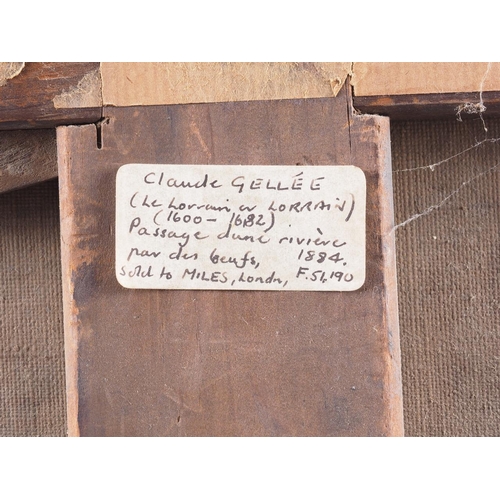 Claude GELLÉE
(Le Lorrain or LORRAIN)
(1600-1682)
Passage d'une rivière
par des bœufs, 1884.
sold to MILES, Londn, F.51,190